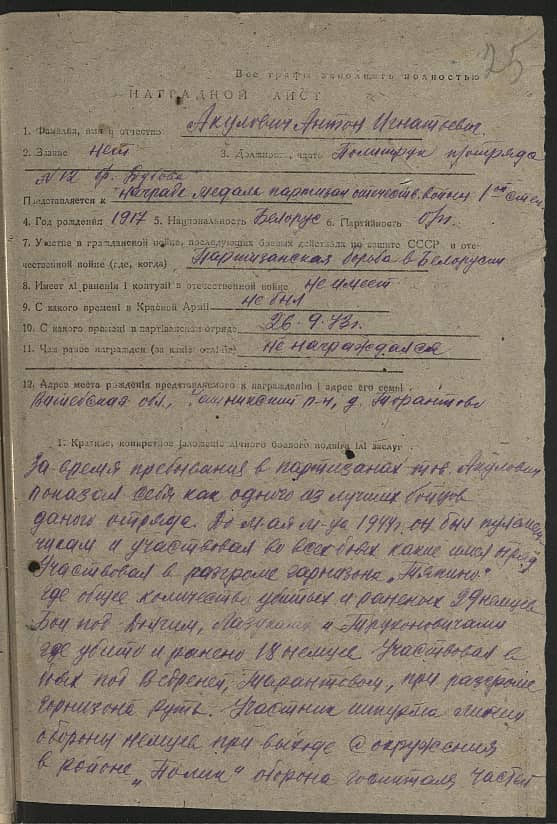 25
Все графы заполнять полностью
НАГРАДНОЙ ЛИСТ
1. Фамилия, имя и отчество Акулович Антон Игнатьевич.
2. Звание нет 3. Должность, часть Политрук п/отряда
№ 12 бр.
Представляется к награде медаль партизан отечеств. войны 1ой степ
4. Год рождения 1917 5. Национальность Белорус 6. Партийность б/п
7. Участие в гражданской войне, последующих боевых действиях по защите СССР и оте-
чественной войне (где, когда) Партизанская борьба в Белорусии
8. Имеет лі раненія і контузіі в отечественной войне не имеет
9. С какого времені в Красной Арміі не был
10. С какого времені в партізанском отряде 26.9.43г.
11. Чем ранее награжден (за какіе отлічія) не награждался
12. Адрес места рожденія представляемого к награжденію і адрес его семьі
Витебская обл, Чашникский р-н, д. Тарантово
1. Краткое, конкретное ізложеніе лічного боевого подвіга ілі заслуг
За время пребывания в партизанах тов. Акулович
показал себя как одного из лучших бойцов
даного отряда. До мая м-ца 1944г. он был пулемет
чикам и участвовал во всех боях какие имел отряд
Участвовал в разгроме гарнизона „Тяпино"
где общее количество убитых и раненых 29 немцев
Бои под и Трухоновичами
где убито и ранено 18 немцев Участвовал в
боях под Тарантовом, при разгроме
горнизона Путь. Участник штурма линии
обороны немцев при выходе с окружения
в районе „Полик" оборона госпиталя частей